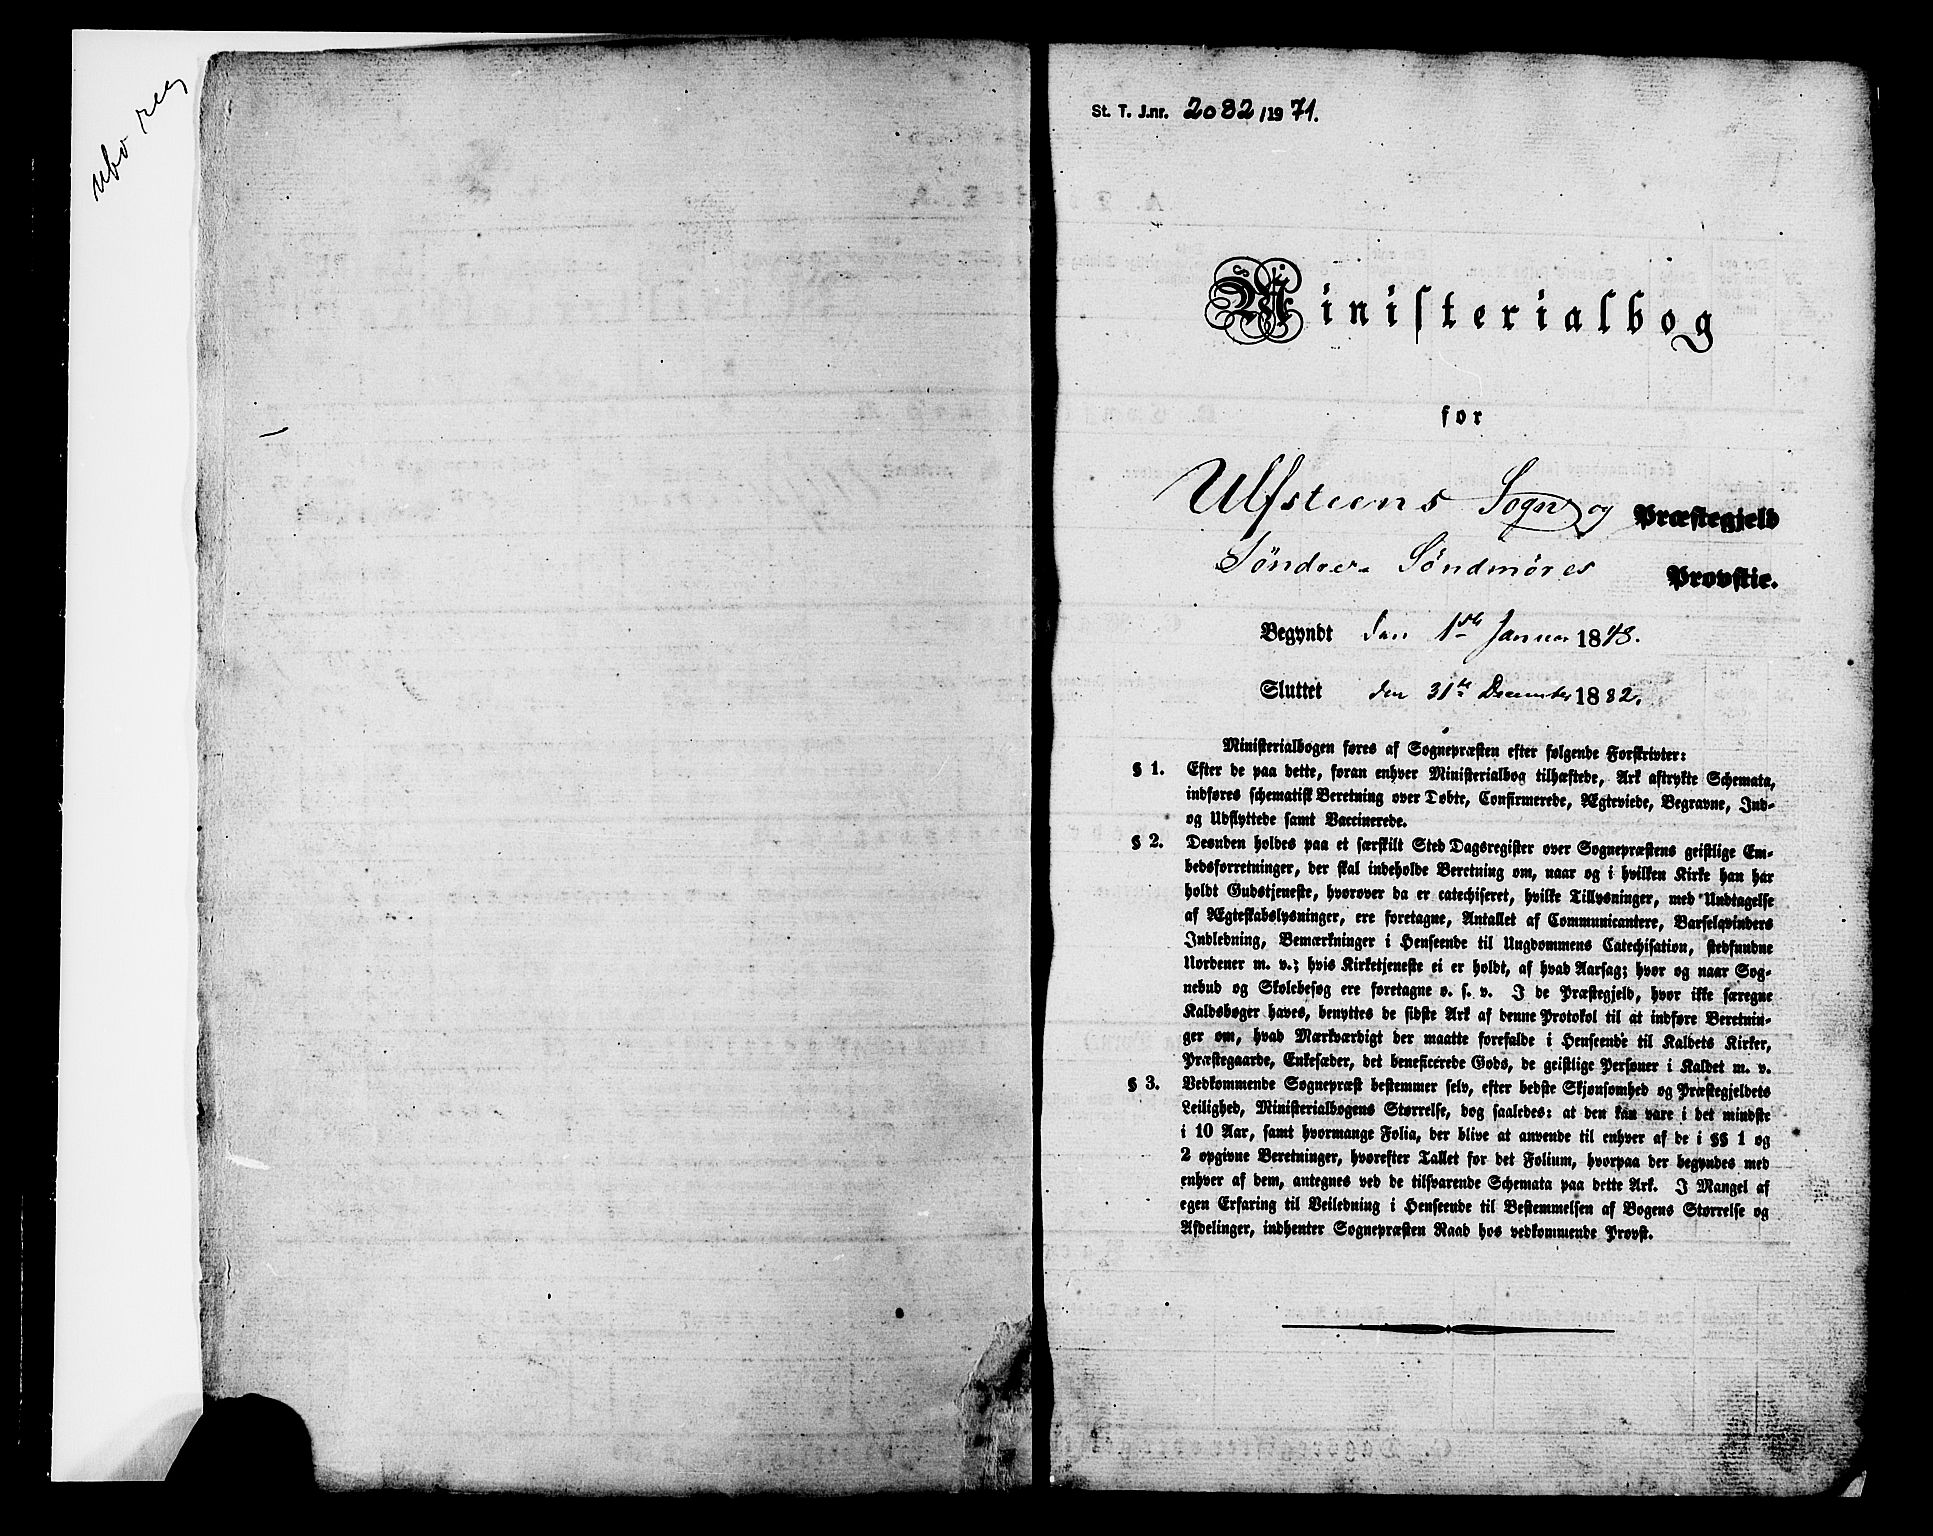 St. T. J.nr. 2082/1971.
Ministerialbog
for
Ulfsteens Sogn og Præstegjeld
Söndre Söndmöres Provstie.
Begyndt den 1ste Januar 1848.
Sluttet den 31te December 1882.
Ministerialbogen føres af Sognepræsten efter følgende Forskrivter:
§ 1. Efter de paa dette, foran enhver Ministerialbog tilhæftede, Ark aftrykte Schemata,
indføres schematisk Beretning over Døbte, Confirmerede, Ægteviede, Begravne, Ind-
og Udflyttede samt Vaccinerede.
§ 2. Desuden holdes paa et særskilt Sted Dagsregister over Sognepræstens geistlige Em-
bedsforretninger, der skal indeholde Beretning om, naar og i hvilken Kirke han har
holdt Gudstjeneste, hvorover da er catechiseret, hvilke Tillysninger, med Undtagelse
af Ægteskabslysninger, ere foretagne, Antallet af Communicantere, Barselqvinders
Indledning, Bemærkninger i Henseende til Ungdommens Catechisation, stedfundne
Uordener m. v.; hvis Kirketjeneste ei er holdt, af hvad Aarsag; hvor og naar Sog-
nebud og Skolebesøg ere foretagne o. s. v. I de Præstegjeld, hvor ikke særegne
Kaldsbøger haves, benyttes de sidste Ark af denne Protokol til at indføre Beretnin-
ger om, hvad Mærkværdigt der maatte forefalde i Henseende til Kaldets Kirker,
Præstegaarde, Enkesæder, det beneficerede Gods, de geistlige Personer i Kaldet m. v.
§ 3. Vedkommende Sognepræst bestemmer selv, efter bedste Skjønsomhed og Præstegjeldets
Leilighed, Ministerialbogens Størrelse, dog saaledes: at den kan vare i det mindste
i 10 Aar, samt hvormange Folia, der blive at anvende til enhver af de i §§ 1 og
2 opgivne Beretninger, hvorefter Tallet for det Folium, hvorpaa der begyndes med
enhver af dem, antegnes ved de tilsvarende Schemata paa dette Ark. I Mangel af
egen Erfaring til Veiledning i Henseende til Bestemmelsen af Bogens Størrelse og
Afdelinger, indhenter Sognepræsten Raad hos vedkommende Provst.